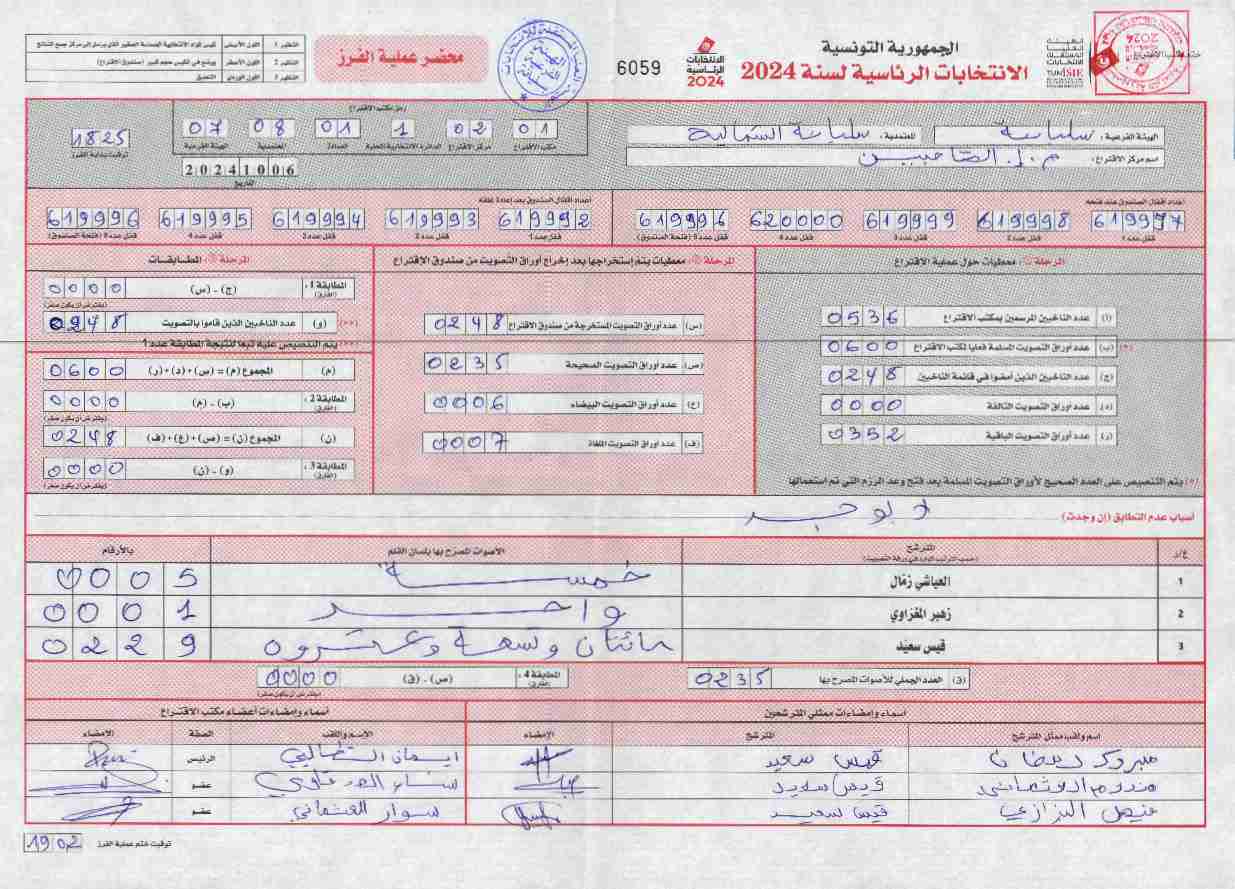 الجمهورية التونسية
الانتخابات الرئاسية لسنة 2024
الهيئة العليا المستقلة للانتخابات
الانتخابات الرئاسية 2024
6059
محضر عملية الفرز
النظير 1 اللون الأبيض
النظير 2 اللون الأصفر
النظير 3 اللون الوردي التعليق
الهيئة الفرعية: سليانة المعتمدية: سليانة الشمالية
اسم مركز الاقتراع:
رمز مكتب الاقتراع
01 02 1 01 08 07
مكتب الاقتراع مركز الاقتراع الدائرة الانتخابية المحلية العمادة المعتمدية الهيئة الفرعية
20241006
التاريخ
1825
توقيت بداية الفرز
أعداد أقفال الصندوق عند فتحه
619977 619998 619999 620000 619996
قفل عدد 1 قفل عدد 2 قفل عدد 3 قفل عدد 4 قفل عدد 5 (فتحة الصندوق)
أعداد أقفال الصندوق بعد إعادة غلقه
619992 619993 619994 619995 619996
قفل عدد 1 قفل عدد 2 قفل عدد 3 قفل عدد 4 قفل عدد 5 (فتحة الصندوق)
المرحلة 1: معطيات حول عملية الاقتراع
(أ) عدد الناخبين المرسمين بمكتب الاقتراع 0536
(*) (ب) عدد أوراق التصويت المسلمة فعليا لمكتب الاقتراع 0600
(ج) عدد الناخبين الذين أمضوا في قائمة الناخبين 0248
(د) عدد أوراق التصويت التالفة 0000
(ر) عدد أوراق التصويت الباقية 0352
(*) يتم التنصيص على العدد الصحيح لأوراق التصويت المسلمة بعد فتح وعد الرزم التي تم استعمالها
المرحلة 2: معطيات يتم إستخراجها بعد إخراج أوراق التصويت من صندوق الاقتراع
(س) عدد أوراق التصويت المستخرجة من صندوق الاقتراع 0248
(ص) عدد أوراق التصويت الصحيحة 0235
(ع) عدد أوراق التصويت البيضاء 0006
(ف) عدد أوراق التصويت الملغاة 0007
المرحلة 3: المطابقات
المطابقة 1: (الفارق) (ج) - (س) 0000
(يفترض أن يكون صفر)
(و) عدد الناخبين الذين قاموا بالتصويت (**) 0248
(**) يتم التنصيص عليه تبعا لنتيجة المطابقة عدد 1
(م) المجموع (م) = (س) + (د) + (ر) 0600
المطابقة 2: (الفارق) (ب) - (م) 0000
(يفترض أن يكون صفر)
(ن) المجموع (ن) = (ص) + (ع) + (ف) 0248
المطابقة 3: (الفارق) (و) - (ن) 0000
(يفترض أن يكون صفر)
أسباب عدم التطابق (إن وجدت)
ع/د المترشح الأصوات المصرح بها بلسان القلم بالأرقام
(حسب الترتيب الوارد في ورقة التصويت)
1 العياشي زمّال خمسة 0005
2 زهير المغزاوي واحد 0001
3 قيس سعيّد مائتان وتسعة وعشرون 0229
(ق) العدد الجملي للأصوات المصرح بها 0235
المطابقة 4: (الفارق) (ص) - (ق) 0000
(يفترض أن يكون صفر)
أسماء وإمضاءات ممثلي المترشحين
اسم ولقب ممثل المترشح المترشح الإمضاء
مبروك رمضان قيس سعيد
قيس سعيد
قيس سعيد
أسماء وإمضاءات أعضاء مكتب الاقتراع
الإسم واللقب الصفة الإمضاء
الرئيس
عضو
سوار العثماني عضو
توقيت ختم عملية الفرز 1902